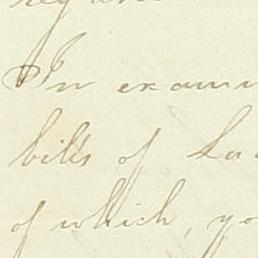 In exami
bills of La
of which, yo